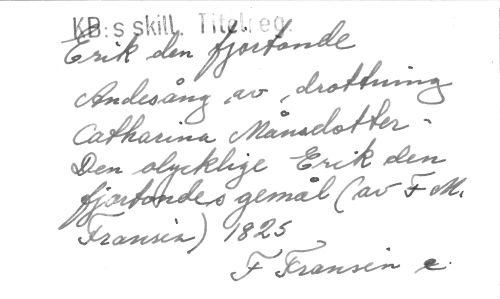 KB:s skill. Titelreg.
Erik den fjortonde
Andesång av drottning
Catharina Månsdotter -
Den olycklige Erik den
fjortondes gemål (av F M.
Fransén) 1825
F Fransén e.